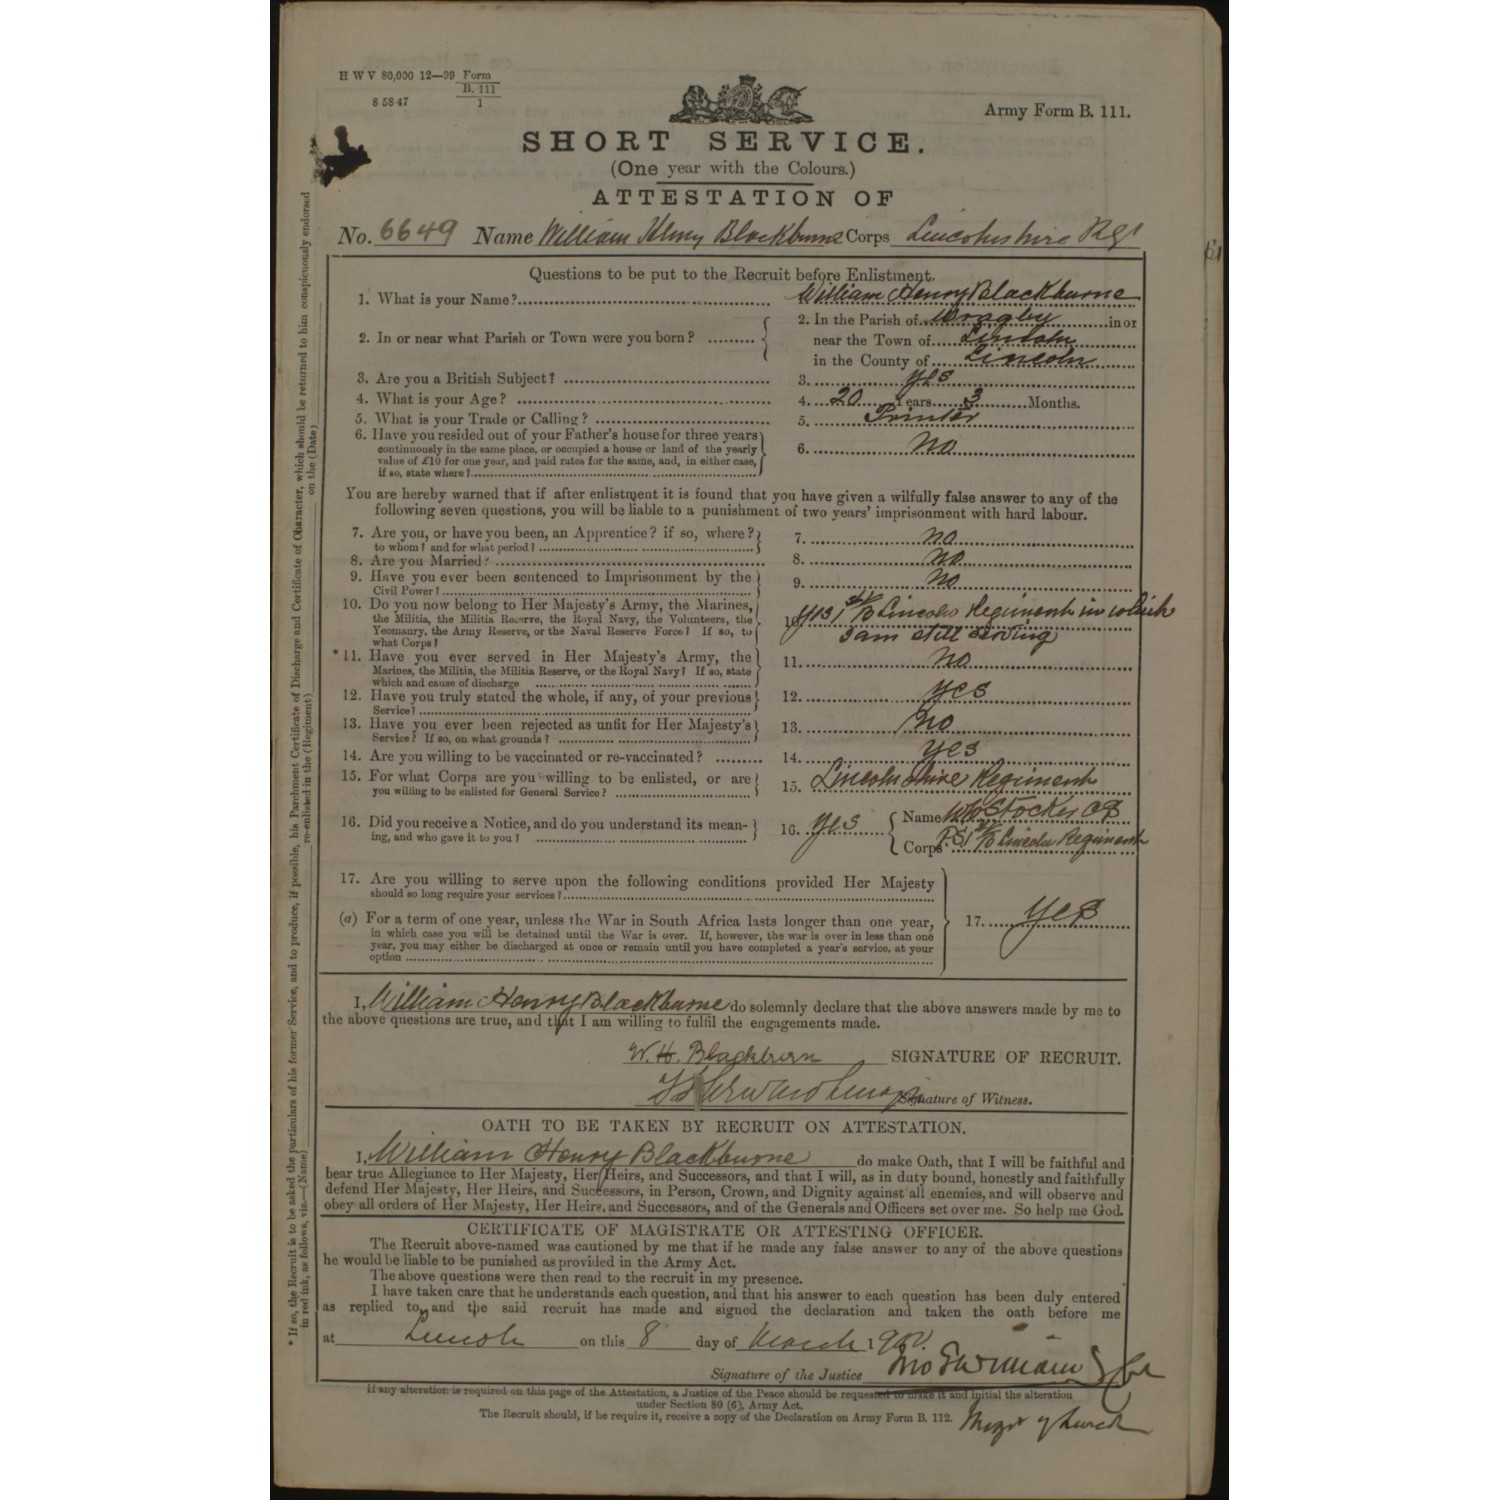 H W V 80,000 12—99 Form B. 111 1
8 58 47
Army Form B. 111.
SHORT SERVICE.
(One year with the Colours.)
ATTESTATION OF
No. 6649 Name William Henry Blackburne Corps Lincolnshire Rgt
Questions to be put to the Recruit before Enlistment.
1. What is your Name? William Henry Blackburne
2. In or near what Parish or Town were you born? 2. In the Parish of Wragby in or
near the Town of Lincoln
in the County of Lincoln
3. Are you a British Subject? 3. yes
4. What is your Age? 4. 20 Years 3 Months.
5. What is your Trade or Calling? 5. Printer
6. Have you resided out of your Father's house for three years
continuously in the same place, or occupied a house or land of the yearly
value of £10 for one year, and paid rates for the same, and, in either case,
if so, state where? 6. No
You are hereby warned that if after enlistment it is found that you have given a wilfully false answer to any of the
following seven questions, you will be liable to a punishment of two years' imprisonment with hard labour.
7. Are you, or have you been, an Apprentice? if so, where?
to whom? and for what period? 7. no
8. Are you Married? 8. no
9. Have you ever been sentenced to Imprisonment by the
Civil Power? 9. No
10. Do you now belong to Her Majesty's Army, the Marines,
the Militia, the Militia Reserve, the Royal Navy, the Volunteers, the
Yeomanry, the Army Reserve, or the Naval Reserve Force? If so, to
what Corps? 10. yes 1st Lincoln Regiment in which
I am still serving
* 11. Have you ever served in Her Majesty's Army, the
Marines, the Militia, the Militia Reserve, or the Royal Navy? If so, state
which and cause of discharge 11. No
12. Have you truly stated the whole, if any, of your previous
Service? 12. yes
13. Have you ever been rejected as unfit for Her Majesty's
Service? If so, on what grounds? 13. No
14. Are you willing to be vaccinated or re-vaccinated? 14. yes
15. For what Corps are you willing to be enlisted, or are
you willing to be enlisted for General Service? 15. Lincolnshire Regiment
16. Did you receive a Notice, and do you understand its mean-
ing, and who gave it to you? 16. yes Name Stocker
Corps Lincoln Regiment
17. Are you willing to serve upon the following conditions provided Her Majesty
should so long require your services?
(a) For a term of one year, unless the War in South Africa lasts longer than one year,
in which case you will be detained until the War is over. If, however, the war is over in less than one
year, you may either be discharged at once or remain until you have completed a year's service, at your
option 17. yes
I, William Henry Blackburne do solemnly declare that the above answers made by me to
the above questions are true, and that I am willing to fulfil the engagements made.
W. H. Blackburn SIGNATURE OF RECRUIT.
Signature of Witness.
OATH TO BE TAKEN BY RECRUIT ON ATTESTATION.
I, William Henry Blackburne do make Oath, that I will be faithful and
bear true Allegiance to Her Majesty, Her Heirs, and Successors, and that I will, as in duty bound, honestly and faithfully
defend Her Majesty, Her Heirs, and Successors, in Person, Crown, and Dignity against all enemies, and will observe and
obey all orders of Her Majesty, Her Heirs, and Successors, and of the Generals and Officers set over me. So help me God.
CERTIFICATE OF MAGISTRATE OR ATTESTING OFFICER.
The Recruit above-named was cautioned by me that if he made any false answer to any of the above questions
he would be liable to be punished as provided in the Army Act.
The above questions were then read to the recruit in my presence.
I have taken care that he understands each question, and that his answer to each question has been duly entered
as replied to, and the said recruit has made and signed the declaration and taken the oath before me
at Lincoln on this 8 day of March 1900.
Signature of the Justice
If any alteration is required on this page of the Attestation, a Justice of the Peace should be requested to make it and initial the alteration
under Section 80 (6), Army Act.
The Recruit should, if he require it, receive a copy of the Declaration on Army Form B. 112.
* If so, the Recruit is to be asked the particulars of his former Service, and to produce, if possible, his Parchment Certificate of Discharge and Certificate of Character, which should be returned to him conspicuously endorsed
in red ink, as follows, viz.—(Name) re-enlisted in the (Regiment) on the (Date)